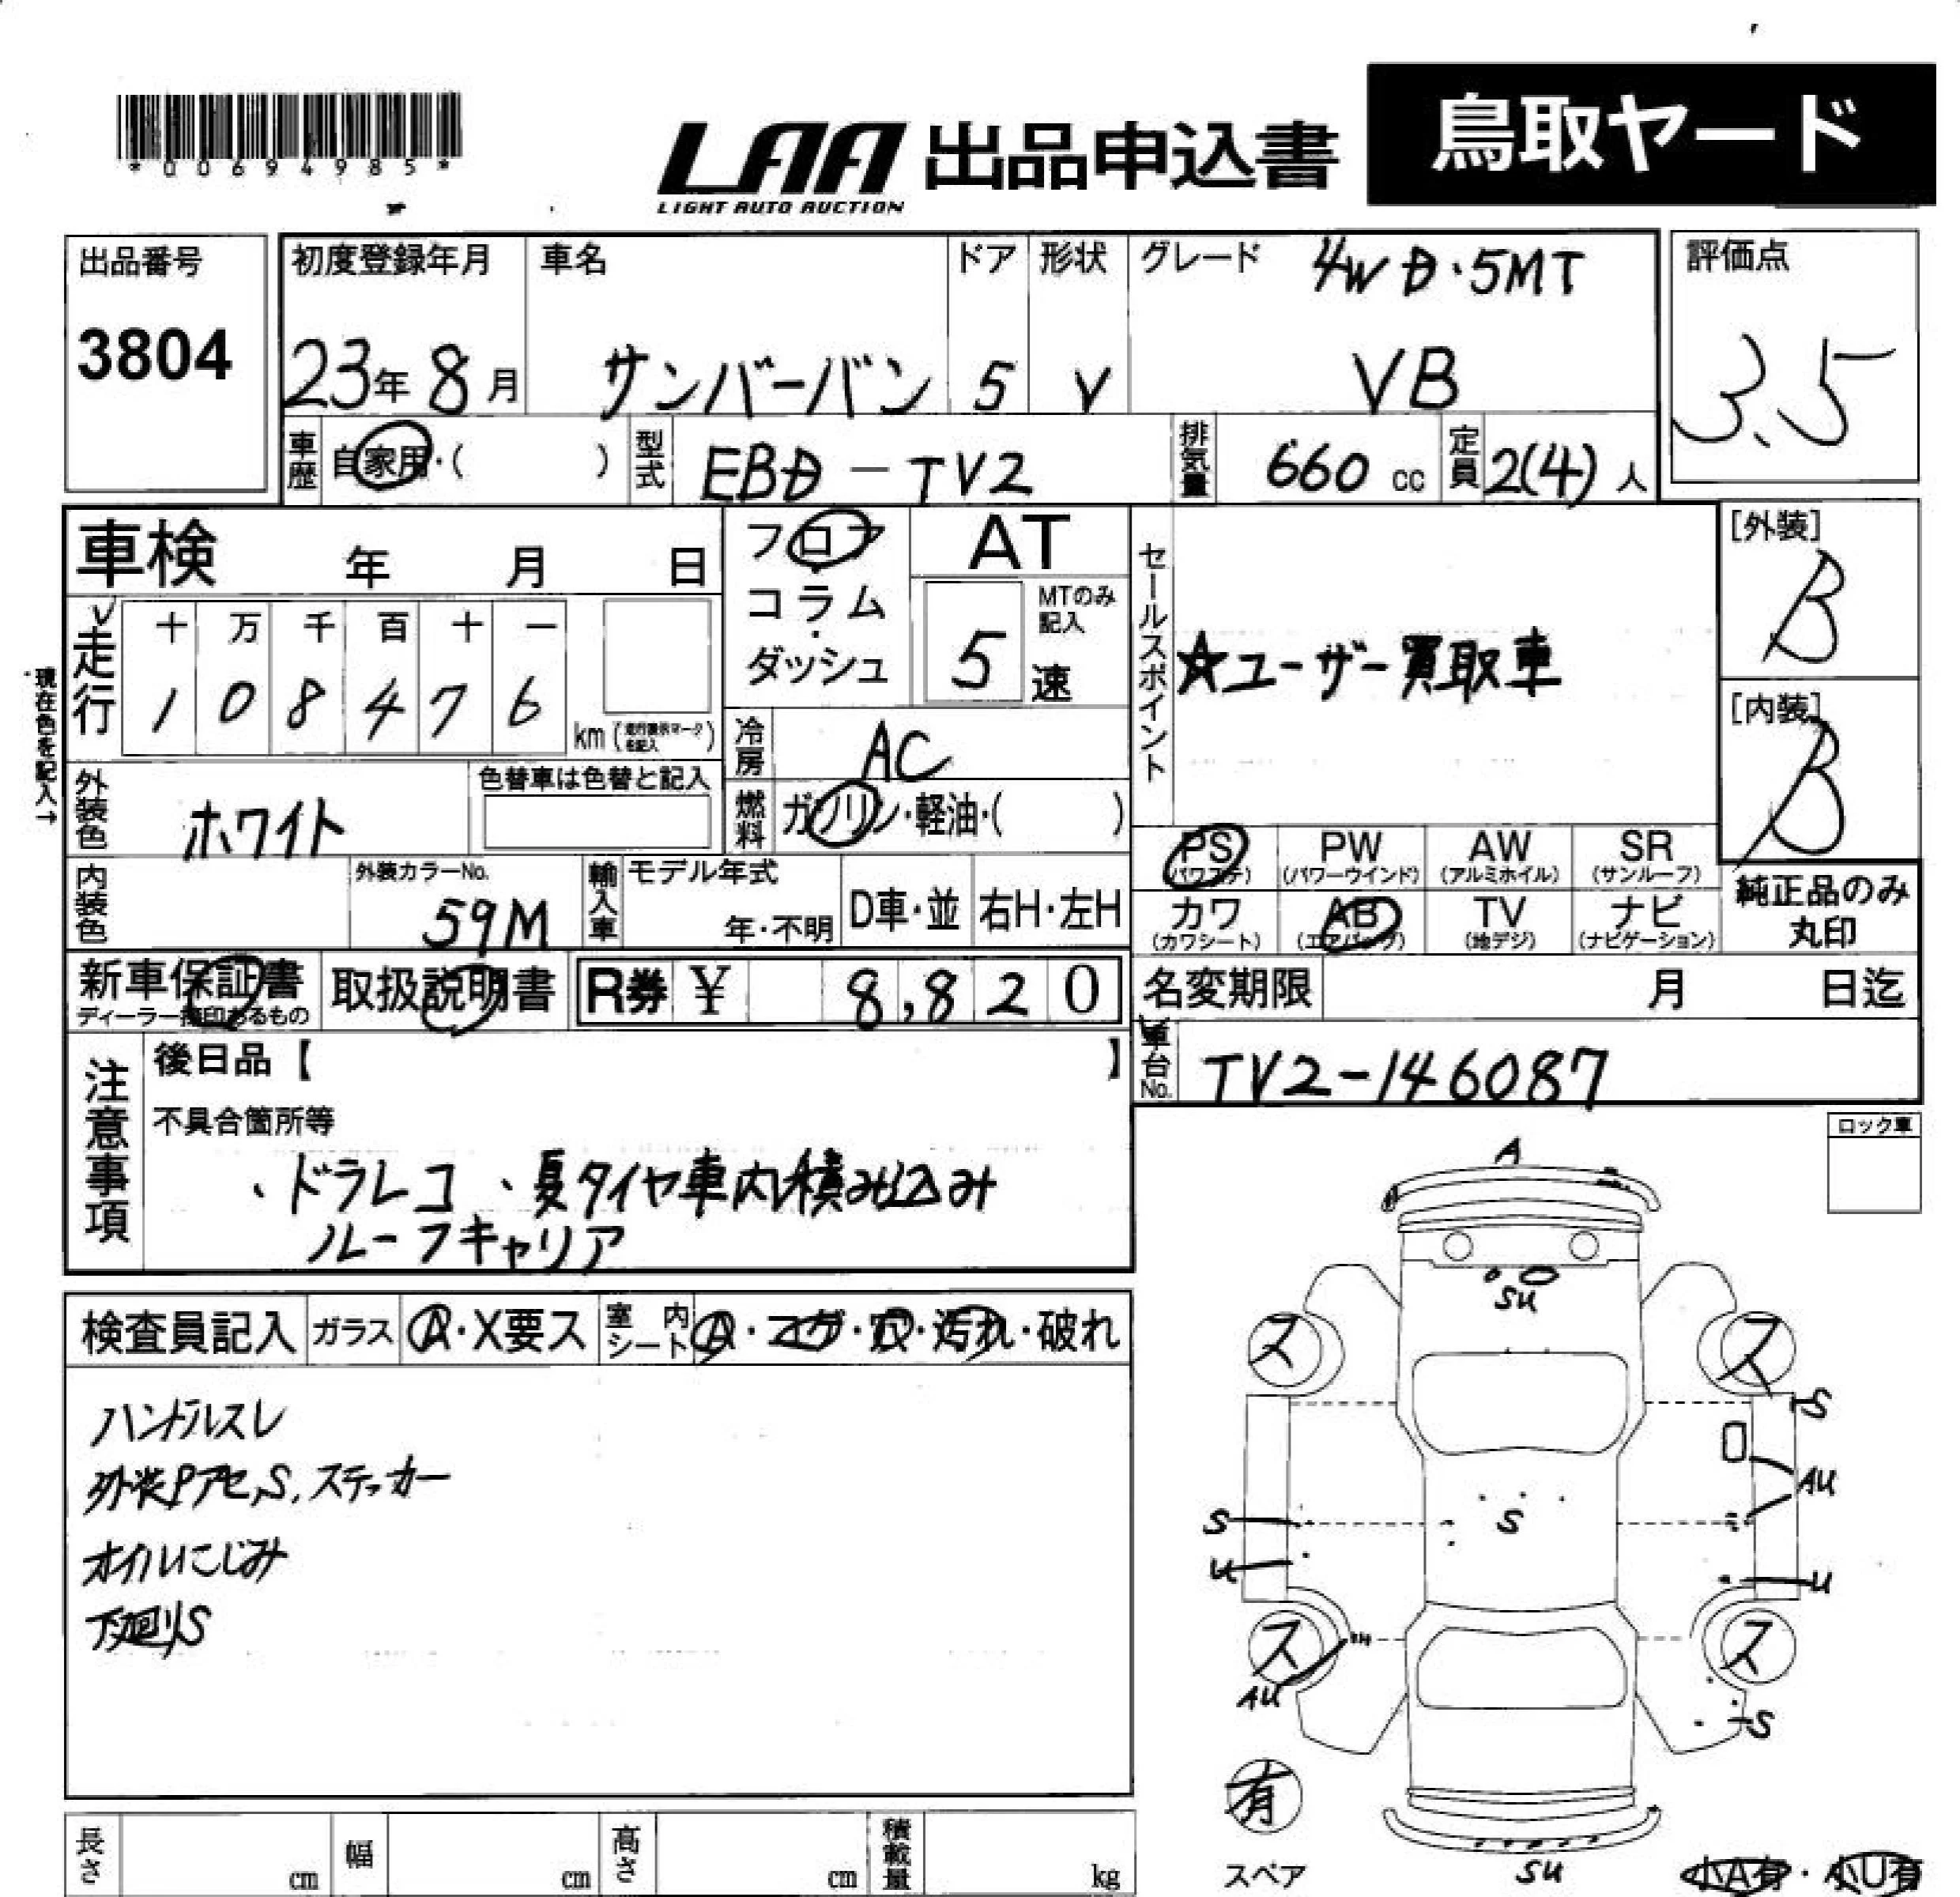 *00694985*
LAA 出品申込書 鳥取ヤード
LIGHT AUTO AUCTION
出品番号
3804
初度登録年月
23年 8月
車名
サンバーバン
ドア
5
形状
V
グレード 4WD・5MT
VB
評価点
3.5
車歴 自家用・( )
型式 EBD-TV2
排気量 660 cc
定員 2(4)人
車検 年 月 日
走行
十 万 千 百 十 一
1 0 8 4 7 6 km
現在色を記入→
フロア・コラム・ダッシュ
AT
5 速
MTのみ記入
冷房 AC
燃料 ガソリン・軽油・( )
セールスポイント
☆ユーザー買取車
[外装]
B
[内装]
B
外装色 ホワイト
色替車は色替と記入
内装色
外装カラーNo.
59M
輸入車
モデル年式
年・不明
D車・並
右H・左H
PS
(パワステ)
PW
(パワーウインド)
AW
(アルミホイル)
SR
(サンルーフ)
カワ
(カワシート)
AB
(エアバッグ)
TV
(地デジ)
ナビ
(ナビゲーション)
純正品のみ
丸印
新車保証書
ディーラー捺印あるもの
取扱説明書
R券 ¥ 8,820
名変期限 月 日迄
車台No. TV2-146087
注意事項
後日品【 】
不具合箇所等
、ドラレコ 、夏タイヤ車内積み込み
ルーフキャリア
ロック車
検査員記入
ガラス A・X要ス
室内シート A・コゲ・穴・汚れ・破れ
ハンドルスレ
外装Pアセ,S,ステッカー
オイルにじみ
下廻りS
A
SU
ス ス
S
AU
S S
U U
ス ス
AU
S
有
スペア
SU
小A有・小U有
長さ cm
幅 cm
高さ cm
積載量 kg